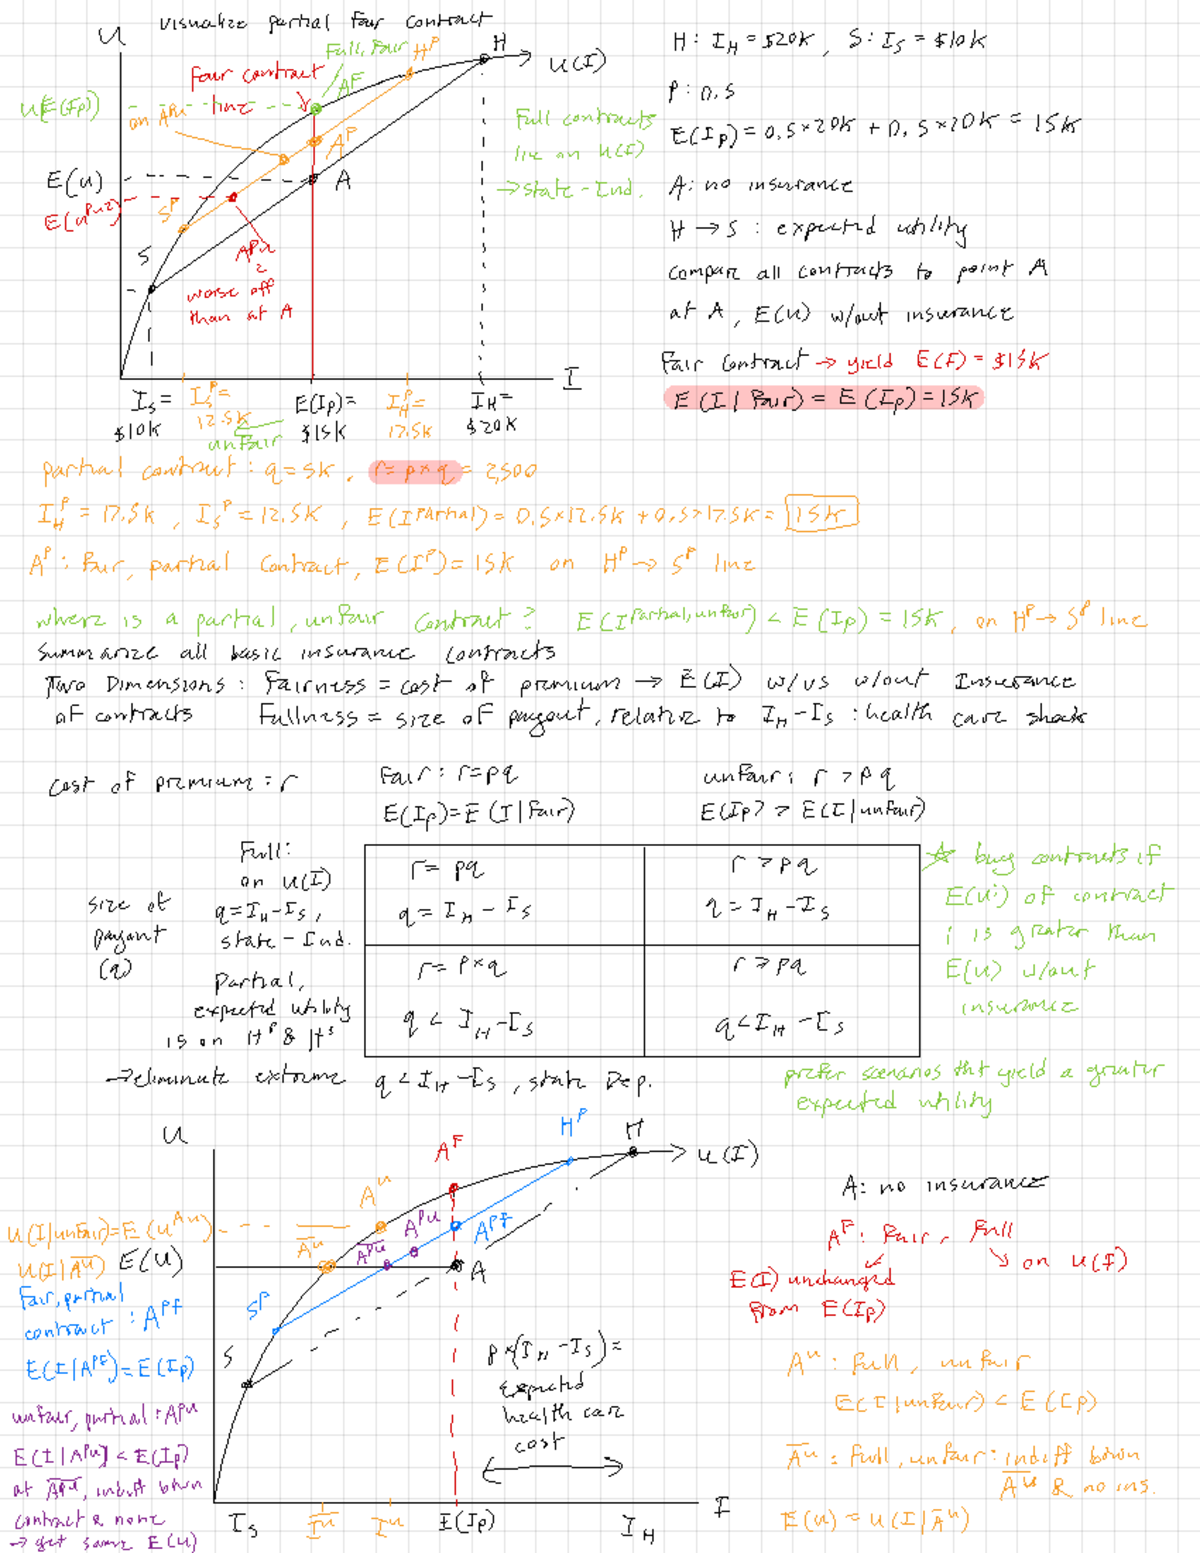 visualize partial fair contract
U
H
u(I)
Full, Fair
H^P
Fair contract line
A^F
u(E(Ip))
on A^Pu
A^P
E(u)
A
E(u^Pu2)
S^P
A^Pu 2
worse off
than at A
S
Full contracts
lie on u(I)
→ state-Ind.
I
I_S =
$10K
I_S^P =
12.5K
unfair
E(Ip) =
$15K
I_H^P =
17.5K
I_H =
$20K
H: I_H = $20K, S: I_S = $10K
P: 0.5
E(Ip) = 0.5×20K + 0.5×10K = 15K
A: no insurance
H → S : expected utility
compare all contracts to point A
at A, E(u) w/out insurance
Fair contract → yield E(I) = $15K
E(I | Fair) = E(Ip) = 15K
partial contract : q = 5K, r = p×q = 2,500
I_H^P = 17.5K, I_S^P = 12.5K, E(I^Partial) = 0.5×12.5K + 0.5×17.5K = 15K
A^P : Fair, partial contract, E(I^P) = 15K on H^P → S^P line
where is a partial, unfair contract? E(I^Partial,unfair) < E(Ip) = 15K, on H^P → S^P line
summarize all basic insurance contracts
Two Dimensions : Fairness = cost of premium → E(I) w/ vs w/out Insurance
of contracts Fullness = size of payout, relative to I_H - I_S : health care shock
cost of premium : r
Fair : r = pq
E(Ip) = E(I | Fair)
unfair : r > pq
E(Ip) > E(I | unfair)
Full:
on u(I)
q = I_H - I_S,
state-Ind.
size of
payout
(q)
r = pq
q = I_H - I_S
r > pq
q = I_H - I_S
Partial,
expected utility
is on H^P & H^S
r = p×q
q < I_H - I_S
r > pq
q < I_H - I_S
→ eliminate extreme q < I_H - I_S, state Dep.
☆ buy contracts if
E(u^i) of contract
i is greater than
E(u) w/out
insurance
prefer scenarios tht yield a greater
expected utility
U
A^F
H^P
H
u(I)
A^u
u(I|unfair) = E(u^Au)
A̅^u
A̅^Pu
A^Pu
A^PF
u(I|A̅^u)
E(u)
A
S^P
S
Fair, partial
contract : A^PF
E(I|A^PF) = E(Ip)
unfair, partial : A^Pu
E(I|A^Pu) < E(Ip)
at A̅^Pu, indiff btwn
contract & none
→ get same E(u)
p×(I_H - I_S) =
Expected
health care
cost
I_S
I̅^u
I^u
E(Ip)
I_H
I
A: no insurance
A^F : Fair, Full
on u(I)
E(I) unchanged
from E(Ip)
A^u : full, unfair
E(I | unfair) < E(Ip)
A̅^u : full, unfair : indiff btwn
A̅^u & no ins.
E(u) = u(I|A̅^u)